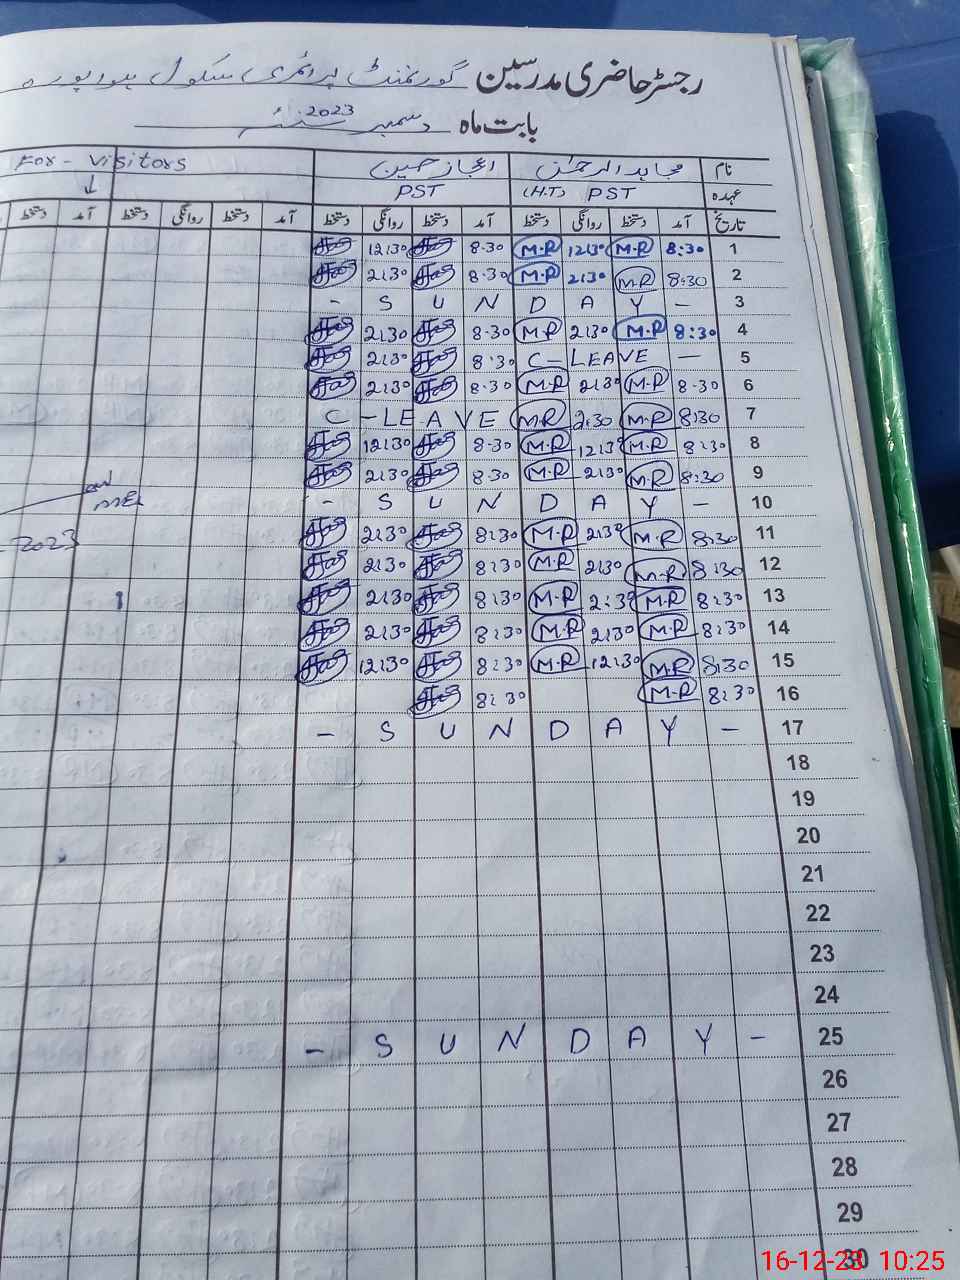 رجسٹر حاضری مدرسین گورنمنٹ پرائمری سکول
بابت ماہ دسمبر 2023
نام مجاہد الرحمٰن اعجاز حسین For - Visitors
عہدہ (H.T) PST PST ↓
تاریخ آمد دستخط روانگی دستخط آمد دستخط روانگی دستخط آمد دستخط روانگی دستخط آمد دستخط
1 8:30 M.R 12:30 M.R 8.30 12:30
2 8:30 M.R 2:30 M.R 8.30 2:30
3 - S U N D A Y -
4 8:30 M.R 2:30 M.R 8.30 2:30
5 C - LEAVE — 8:30 2:30
6 8.30 M.R 2:30 M.R 8.30 2:30
7 8:30 M.R 2:30 M.R C - LEAVE
8 8:30 M.R 12:30 M.R 8.30 12:30
9 8:30 M.R 2:30 M.R 8.30 2:30
10 - S U N D A Y -
11 8:30 M.R 2:30 M.R 8:30 2:30
- 2023
12 8:30 M.R 2:30 M.R 8:30 2:30
13 8:30 M.R 2:30 M.R 8:30 2:30
14 8:30 M.R 2:30 M.R 8:30 2:30
15 8:30 M.R 12:30 M.R 8:30 12:30
16 8:30 M.R 8:30
17 - S U N D A Y -
18
19
20
21
22
23
24
25 - S U N D A Y -
26
27
28
29
30
16-12-23 10:25